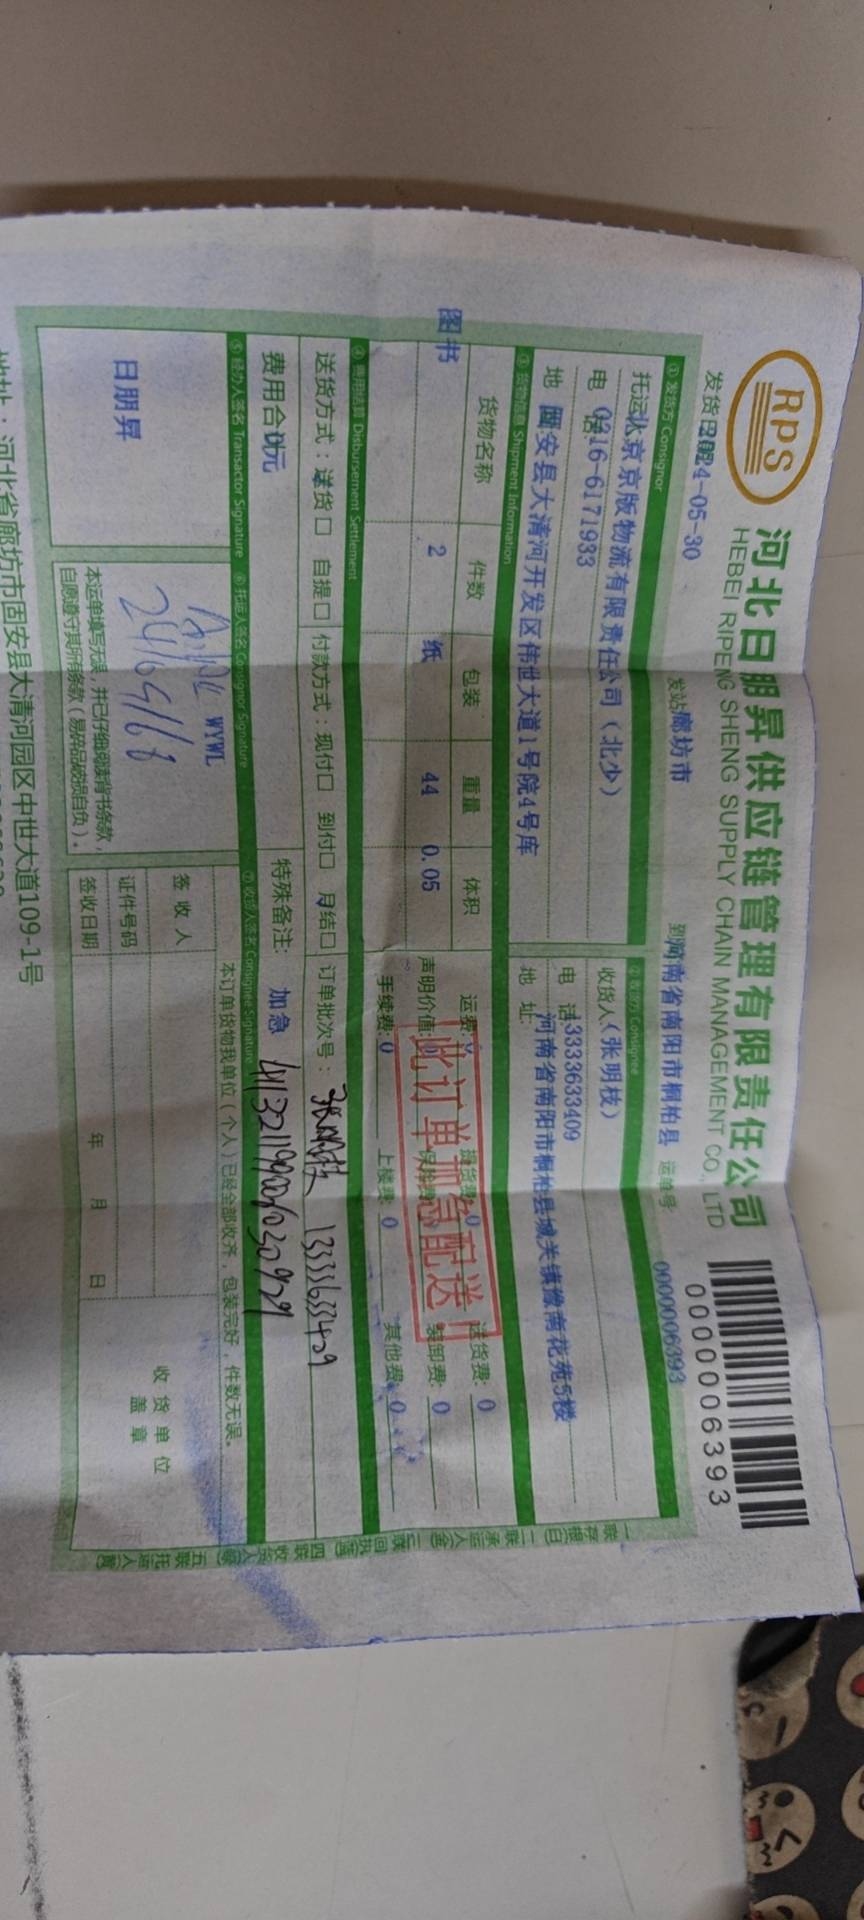 RPS
河北日朋昇供应链管理有限责任公司
HEBEI RIPENG SHENG SUPPLY CHAIN MANAGEMENT CO., LTD
0000006393
发货日期 2024-05-30
发站 廊坊市
到 河南省南阳市桐柏县
运单号 0000006393
① 发货方 Consignor
② 收货方 Consignee
托运 北京京版物流有限责任公司（北少）
收货人 （张明枝）
电话 0316-6171933
电话 13333633409
地 固安县大清河开发区伟世大道1号院4号库
地址 河南省南阳市桐柏县城关镇豫南花苑5楼
③ 货物信息 Shipment Information
货物名称 件数 包装 重量 体积
运费: 0 提货费: 0 送货费: 0
图书 2 纸 44 0.05
声明价值: 0 保险费: 0 装卸费: 0
手续费: 0 上楼费: 0 其他费: 0
此订单 配送
④ 费用结算 Disbursement Settlement
送货方式：送货□ 自提□ 付款方式：现付□ 到付□ 月结□ 订单批次号：
张明枝 13333633409
费用合计 元
特殊备注: 加急
⑤ 经办人签名 Transactor Signature ⑥ 托运人签名 Consignor Signature ⑦ 收货人签名 Consignee Signature
日朋昇
WYWL
本运单填写无误，并已仔细阅读背书条款，
自愿遵守其所有条款（易碎品破损自负）。
本订单货物我单位（个人）已经全部收齐，包装完好，件数无误。
签收人
证件号码
签收日期 年 月 日
收货单位
盖章
地址：河北省廊坊市固安县大清河园区中世大道109-1号